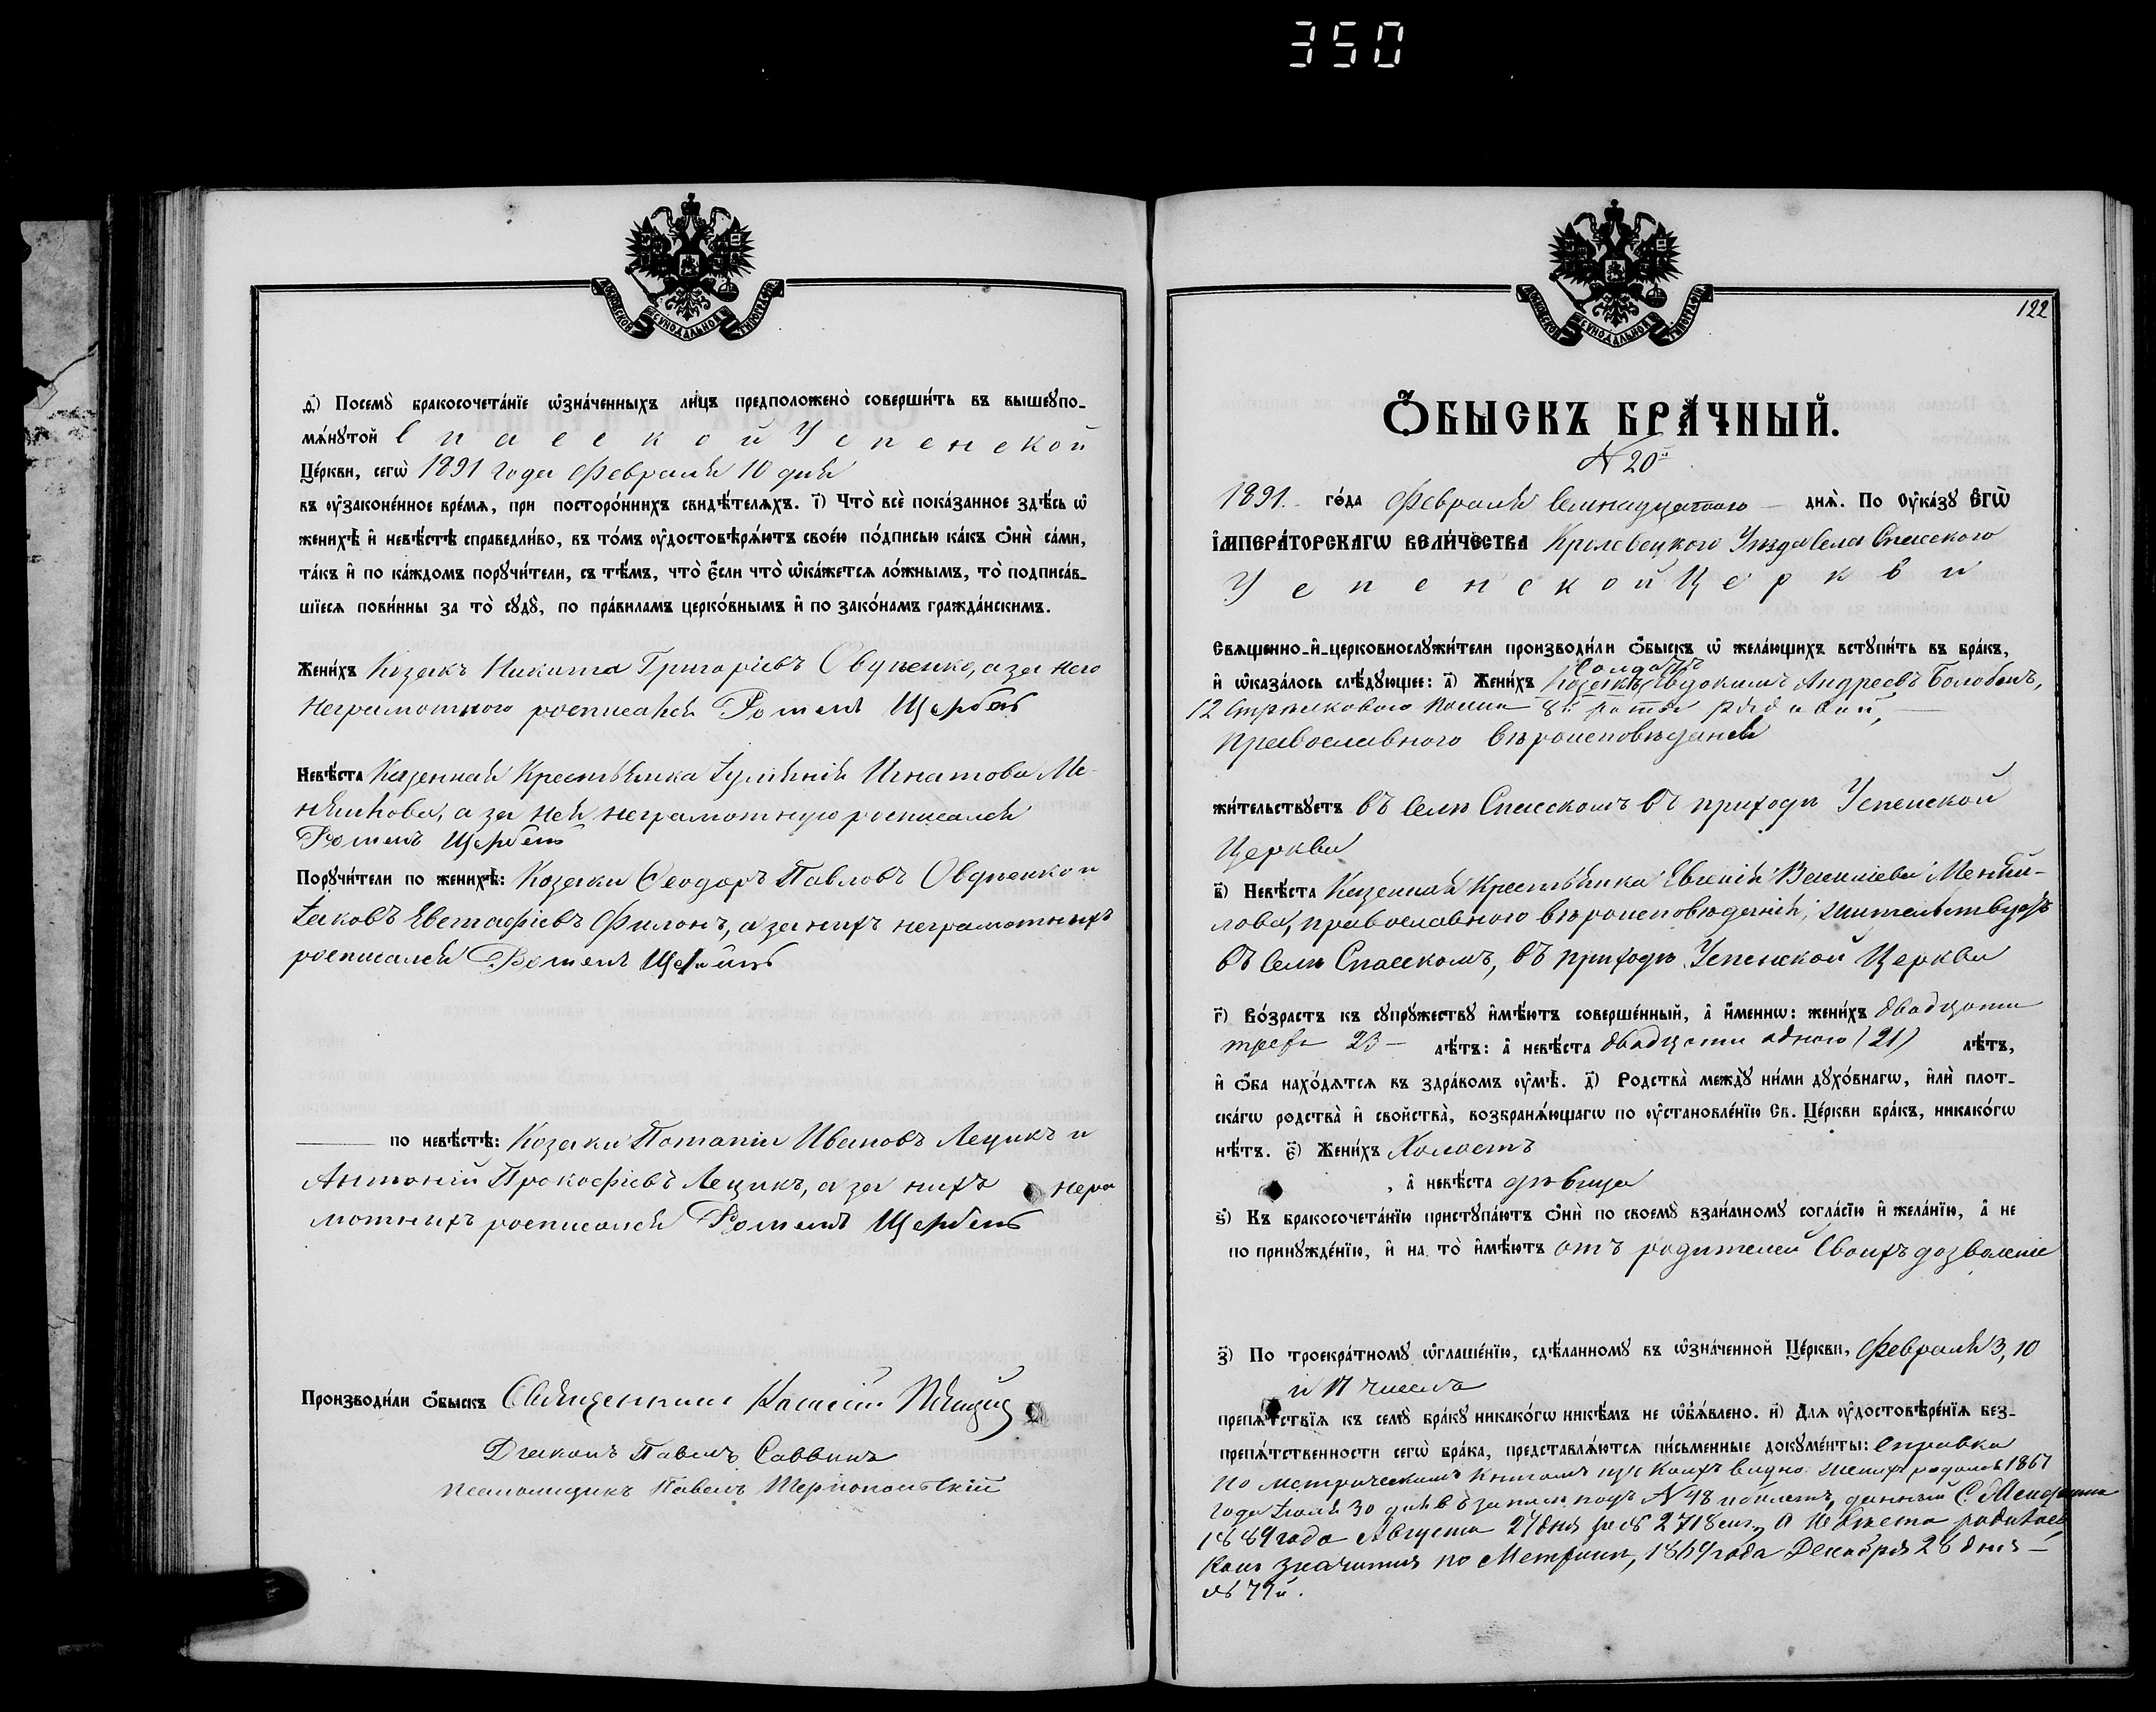 350
МОСКОВСКОЙ СѴНОДАЛЬНОЙ ТИПОГРАФІИ
д҃) Посемꙋ̀ бракосочета́нїе ѡ҆зна́ченныхъ ли́цъ предположено̀ соверши́ть въ вышеꙋпо-
мѧ́нꙋтой Спасской Успенской
Це́ркви, сегѡ̀ 1891 года Февраля 10 дня
въ ᲂу҆законе́нное вре́мѧ, при посторо́ннихъ свидѣ́телѧхъ. і҃) Что̀ всѐ пока́занное здѣ́сь ѡ҆
женихѣ̀ и҆ невѣ́стѣ справедли́во, въ то́мъ ᲂу҆достовѣрѧ́ютъ свое́ю по́дписью ка́къ ѻ҆нѝ са́ми,
та́къ и҆ по ка́ждомъ порꙋчи́тели, съ тѣ́мъ, что̀ є҆́сли что̀ ѡ҆ка́жетсѧ ло́жнымъ, то̀ подписа́в-
шїесѧ пови́нны за то̀ сꙋдꙋ̀, по пра́виламъ церко́внымъ и҆ по зако́намъ гражда́нскимъ.
Жени́хъ Козакъ Никита Григоріевъ Овдіенко, а за него
неграмотного росписался Романъ Щербакъ
Невѣ́ста Казенная Крестьянка Іулянія Игнатова Ме-
няйлова, а за ней неграмотную росписался
Романъ Щербакъ
Порꙋчи́тели по женихѣ̀: Козаки Ѳеодоръ Павловъ Овдіенко и
Іаковъ Евстафіевъ Филонъ, а за нихъ неграмотныхъ
росписался Романъ Щербакъ
по невѣ́стѣ: Козаки Потапій Ивановъ Лецикъ и
Антоній Прокофіевъ Лецикъ, а за нихъ негра
мотныхъ росписался Романъ Щербакъ
Производи́ли ѻ҆́быскъ Священникъ
Діаконъ Павелъ Саввинъ
Псаломщикъ Павелъ Тернопольскій
МОСКОВСКОЙ СѴНОДАЛЬНОЙ ТИПОГРАФІИ
122
Ѻ҆́БЫСКЪ БРА́ЧНЫЙ.
N 20й
1891. го́да Февраля Семнадцатого днѧ̀. По ᲂу҆ка́зꙋ Є҆гѡ̀
І҆мпера́торскагѡ вели́чества Кролевецкого Уѣзда Села Спасского
Успенской Церкви
Свѧще́нно-и҆-церковнослꙋжи́тели производи́ли ѻ҆́быскъ ѡ҆ жела́ющихъ встꙋпи́ть въ бра́къ,
Солдатъ
и҆ ѡ҆каза́лось слѣ́дꙋющее: а҃) Жени́хъ Козакъ Евдокимъ Андреевъ Болобанъ,
12 Стрѣлковаго Полка 8й роты рядовой,
православного вѣроисповѣданія
жи́тельствꙋетъ въ Селѣ Спасскомъ въ приходѣ Успенской
Церкви
в҃) Невѣ́ста Казенная Крестьянка Евгенія Василіева Меняй-
лова, православного вѣроисповѣданія, жительствуетъ
въ Селѣ Спасскомъ, въ приходѣ Успенской Церкви
г҃) Во́зрастъ къ сꙋпрꙋ́жествꙋ и҆мѣ́ютъ соверше́нный, а҆ и҆́меннѡ: жени́хъ двадцати
трехъ 23 – лѣ́тъ: а҆ невѣ́ста двадцати одного (21) лѣ́тъ,
и҆ ѻ҆́ба нахо́дѧтсѧ въ здра́вомъ ᲂу҆мѣ̀. д҃) Родства̀ междꙋ̀ ни́ми дꙋхо́внагѡ, и҆лѝ плот-
ска́гѡ родства̀ и҆ свойства̀, возбранѧ́ющагѡ по ᲂу҆становле́нїю Св. Це́ркви бра́къ, никако́гѡ
нѣ́тъ. є҃) Жени́хъ Холостъ
, а҆ невѣ́ста дѣвица
ѕ҃) Къ бракосочета́нїю пристꙋпа́ютъ ѻ҆нѝ по своемꙋ̀ взаи́мномꙋ согла́сїю и҆ жела́нїю, а҆ не
по принꙋжде́нїю, и҆ на то̀ и҆мѣ́ютъ отъ родителей своихъ дозволеніе
з҃) По троекра́тномꙋ ѡ҆глаше́нїю, сдѣ́ланномꙋ въ ѡ҆зна́ченной Це́ркви, Февраля 3, 10
и 17 числа
препѧ́тствїѧ къ семꙋ̀ бра́кꙋ никако́гѡ никѣ́мъ не ѡ҆б̾ѧ́влено. и҃) Длѧ ᲂу҆достовѣре́нїѧ без-
препѧ́тственности сегѡ̀ бра́ка, представлѧ́ютсѧ пи́сьменные докꙋме́нты: Справка
по метрическимъ книгамъ изъ коихъ видно женихъ родился 1867
года Іюля 30 дня записанъ подъ N 48 и билетъ, данный
1889 года Августа 27 дня за № 2718 а Невѣста родилась
какъ значится по Метрики, 1869 года Декабря 28 дня –
№ 79й.